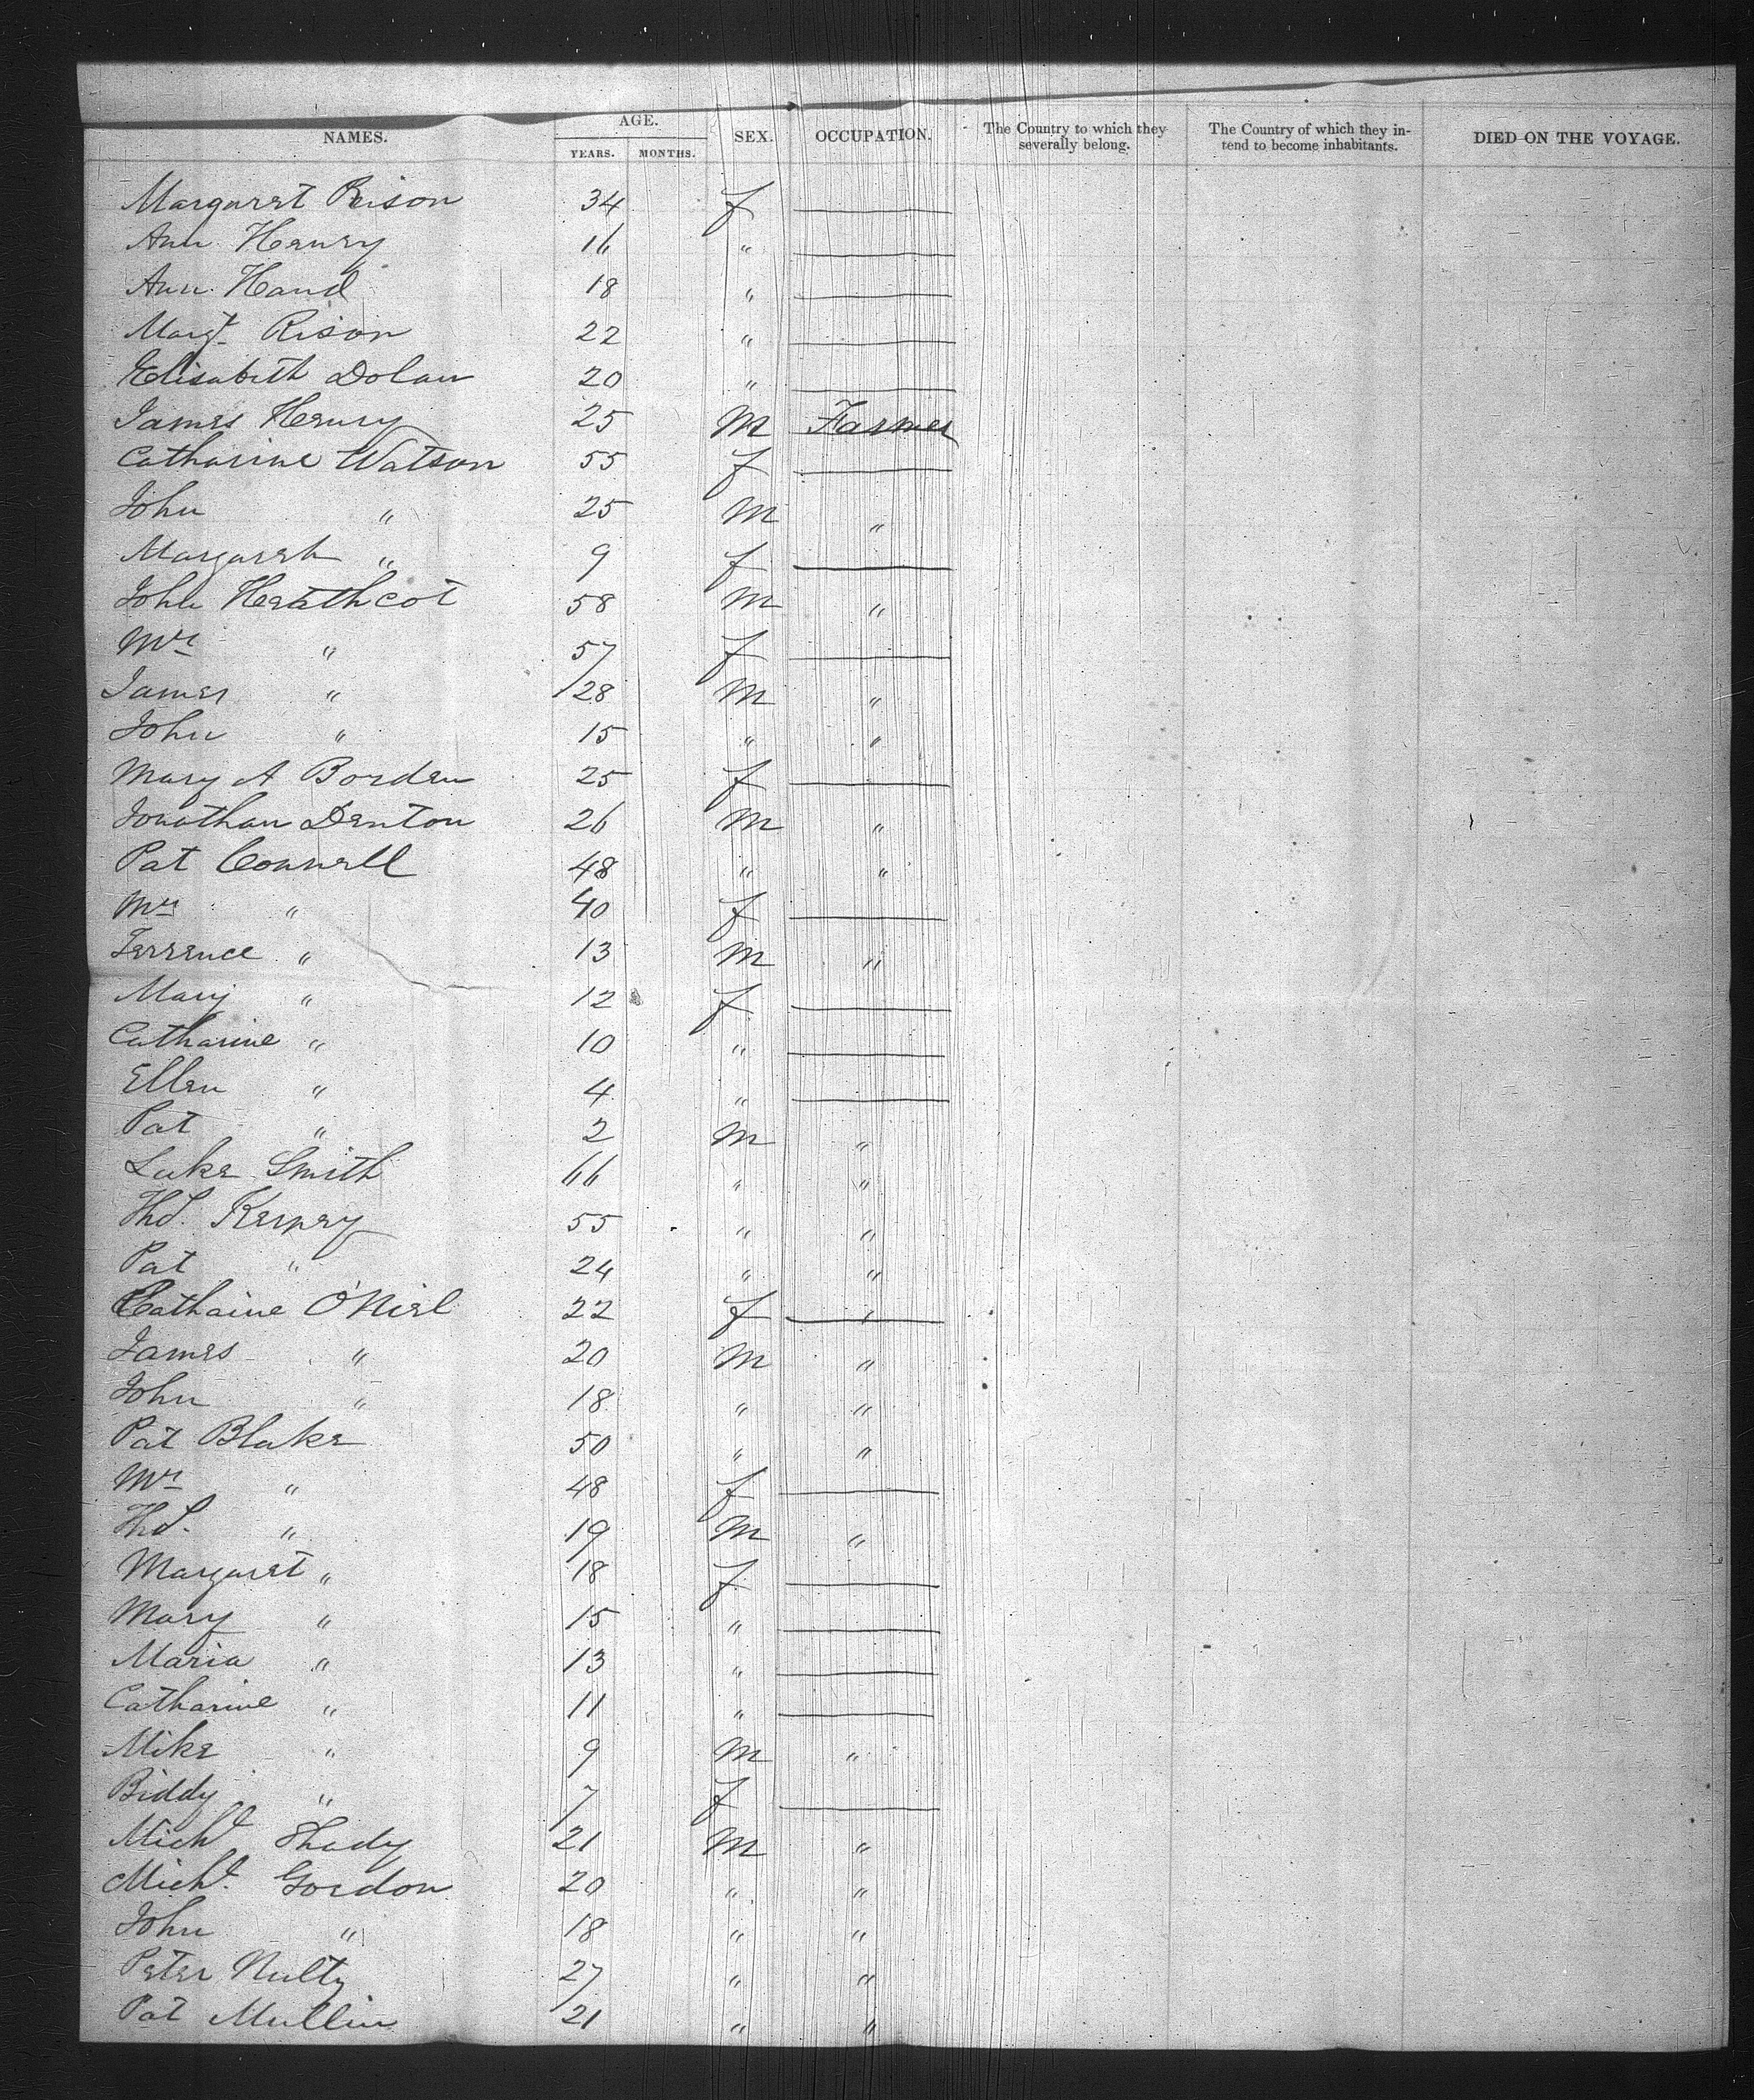 NAMES. AGE. SEX. OCCUPATION. The Country to which they severally belong. The Country of which they intend to become inhabitants. DIED ON THE VOYAGE.
YEARS. MONTHS.
Margaret Rison 34 f —
Ann Henry 16 " —
Ann Hand 18 " —
Margt Rison 22 " —
Elisabeth Dolan 20 " —
James Henry 25 M Farmer
Catharine Watson 55 f —
John " 25 M "
Margareth " 9 f —
John Heathcot 58 M "
Mrs " 57 f —
James " 28 M "
John " 15 " "
Mary A Borden 25 f —
Jonathan Denton 26 M "
Pat Connell 48 " "
Mrs " 40 f —
Terrence " 13 M "
Mary " 12 f —
Catharine " 10 " —
Ellen " 4 " —
Pat " 2 M "
Luke Smith 66 " "
Ths. 55 " "
Pat " 24 " "
Cathaine O'Niel 22 f —
James " 20 M "
John " 18 " "
Pat Blake 50 " "
Mrs " 48 f —
Ths. " 19 M "
Margaret " 18 f —
Mary " 15 " —
Maria " 13 " —
Catharine " 11 " —
Mike " 9 M "
Biddy " 7 f —
Michl 21 M "
Michl. Gordon 20 " "
John " 18 " "
Peter Nulty 27 " "
Pat Mullin 21 " "